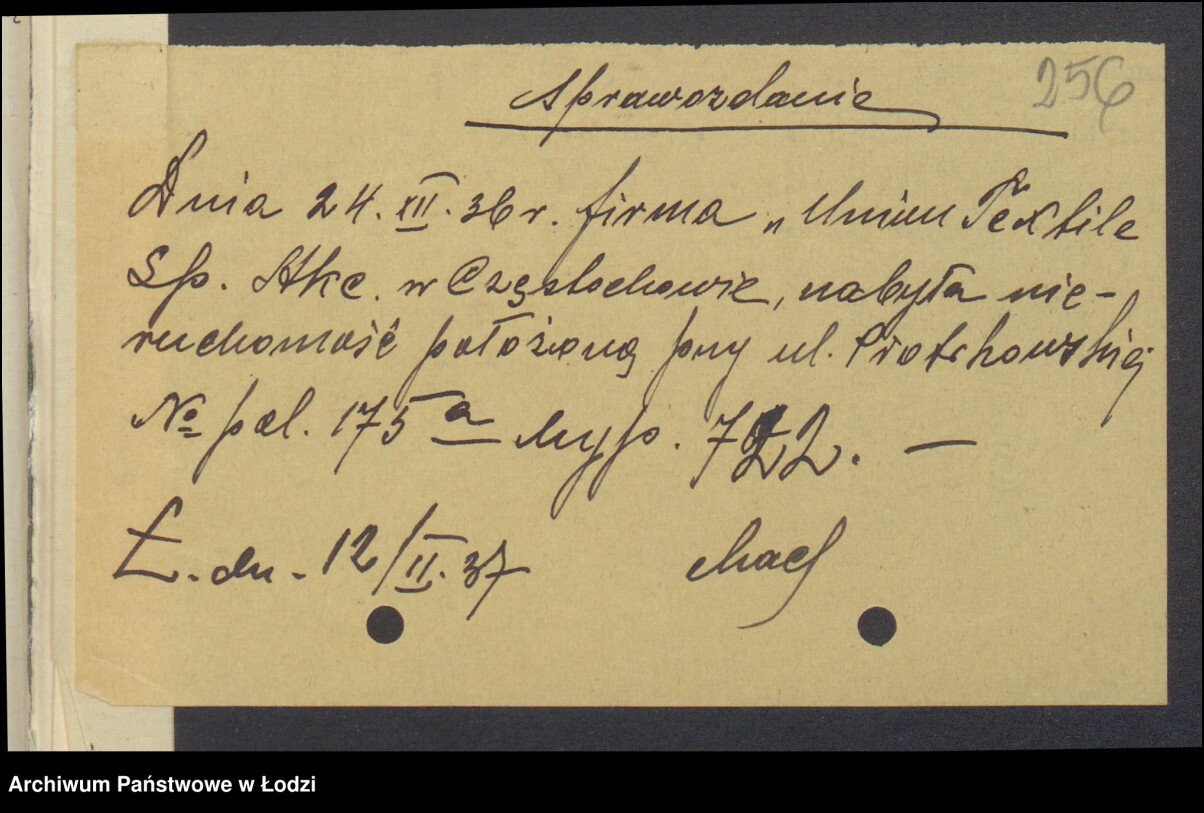 256
Sprawozdanie
Dnia 24. XII. 36 r. firma „Union Textile
Sp. Akc. w Częstochowie, nabyła nie-
ruchomość położoną przy ul. Piotrkowskiej
No pol. 175 a hyp. 722. —
Ł. dn. 12/II. 37
Archiwum Państwowe w Łodzi